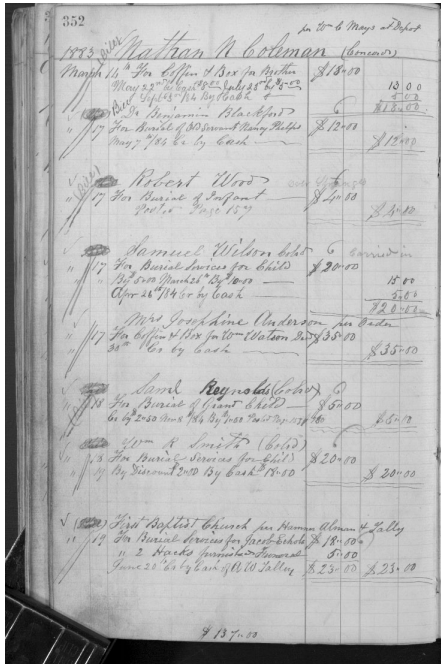 352
per Wm C Mays at Depot
1883 Nathan N Coleman (Concord)
March 14th For Coffin & Box for Brother $18.00
May 22nd By Cash 8.00 July 25th By 5.00 13 00
Sept 3rd /84 By Cash 5.00
$18.00
Dr Benjamin Blackford
" 17 For Burial of Old Servant Nancy Phelps $12.00
May 7th /84 Cr by Cash $12.00
Robert Wood
" 17 For Burial of Infant $4.00
Posted Page 157 $4.00
Samuel Wilson Cold carried in
" 17 For Burial Services for Child $20.00
By 5.00 March 26th By 10.00 15 00
Apr 26th /84 Cr by Cash 5.00
$20.00
Mrs Josephine Anderson per Order
" 17 For Coffin & Box for Wm Watson $35.00
Cr by Cash $35.00
Saml Reynolds (Cold)
" 18 For Burial of Grand Child $5.00
Cr By 2.50
Wm R Smith (Cold)
" 18 For Burial Services for Child $20.00
By Discount 2.00 By Cash 18.00 $20.00
First Baptist Church per Haman Alman & Talley
" 19 For Burial Services for Jacob Echols $18.00
" 2 Hacks furnished Funeral 5.00
June 22nd Cr by Cash of A W Talley $23.00 $23.00
$137.00